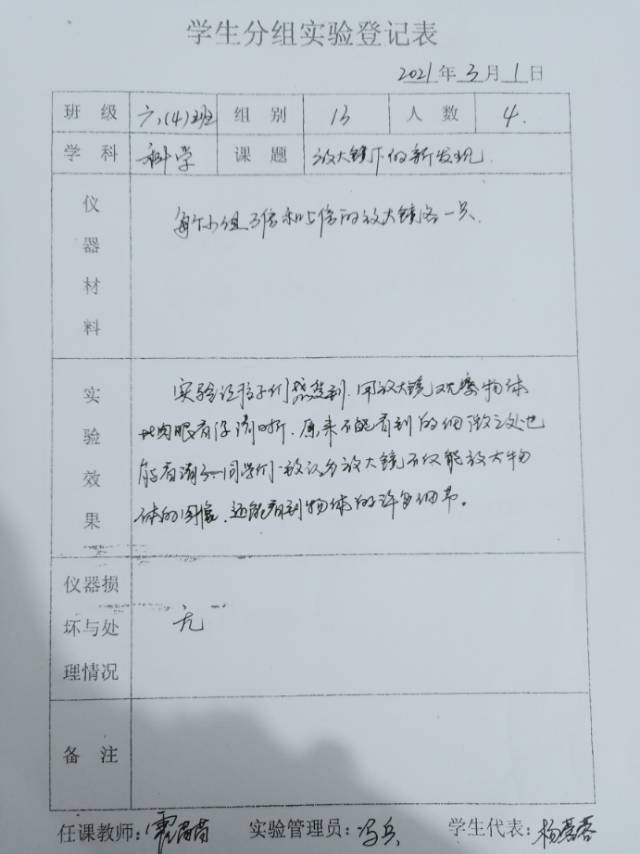 学生分组实验登记表
2021年3月1日
班级 六.(4)班 组别 13 人数 4.
学科 科学 课题 放大镜下的新发现.
仪器材料 每个小组3倍和5倍的放大镜各一只.
实验效果 实验让孩子们感受到.用放大镜观察物体
比肉眼看得清晰.原来不能看到的细微之处也
能看清了.同学们一致认为放大镜不仅能放大物
体的图像.还能看到物体的许多细节。
仪器损
坏与处 无
理情况
备注
任课教师: 实验管理员:冯兵 学生代表:杨